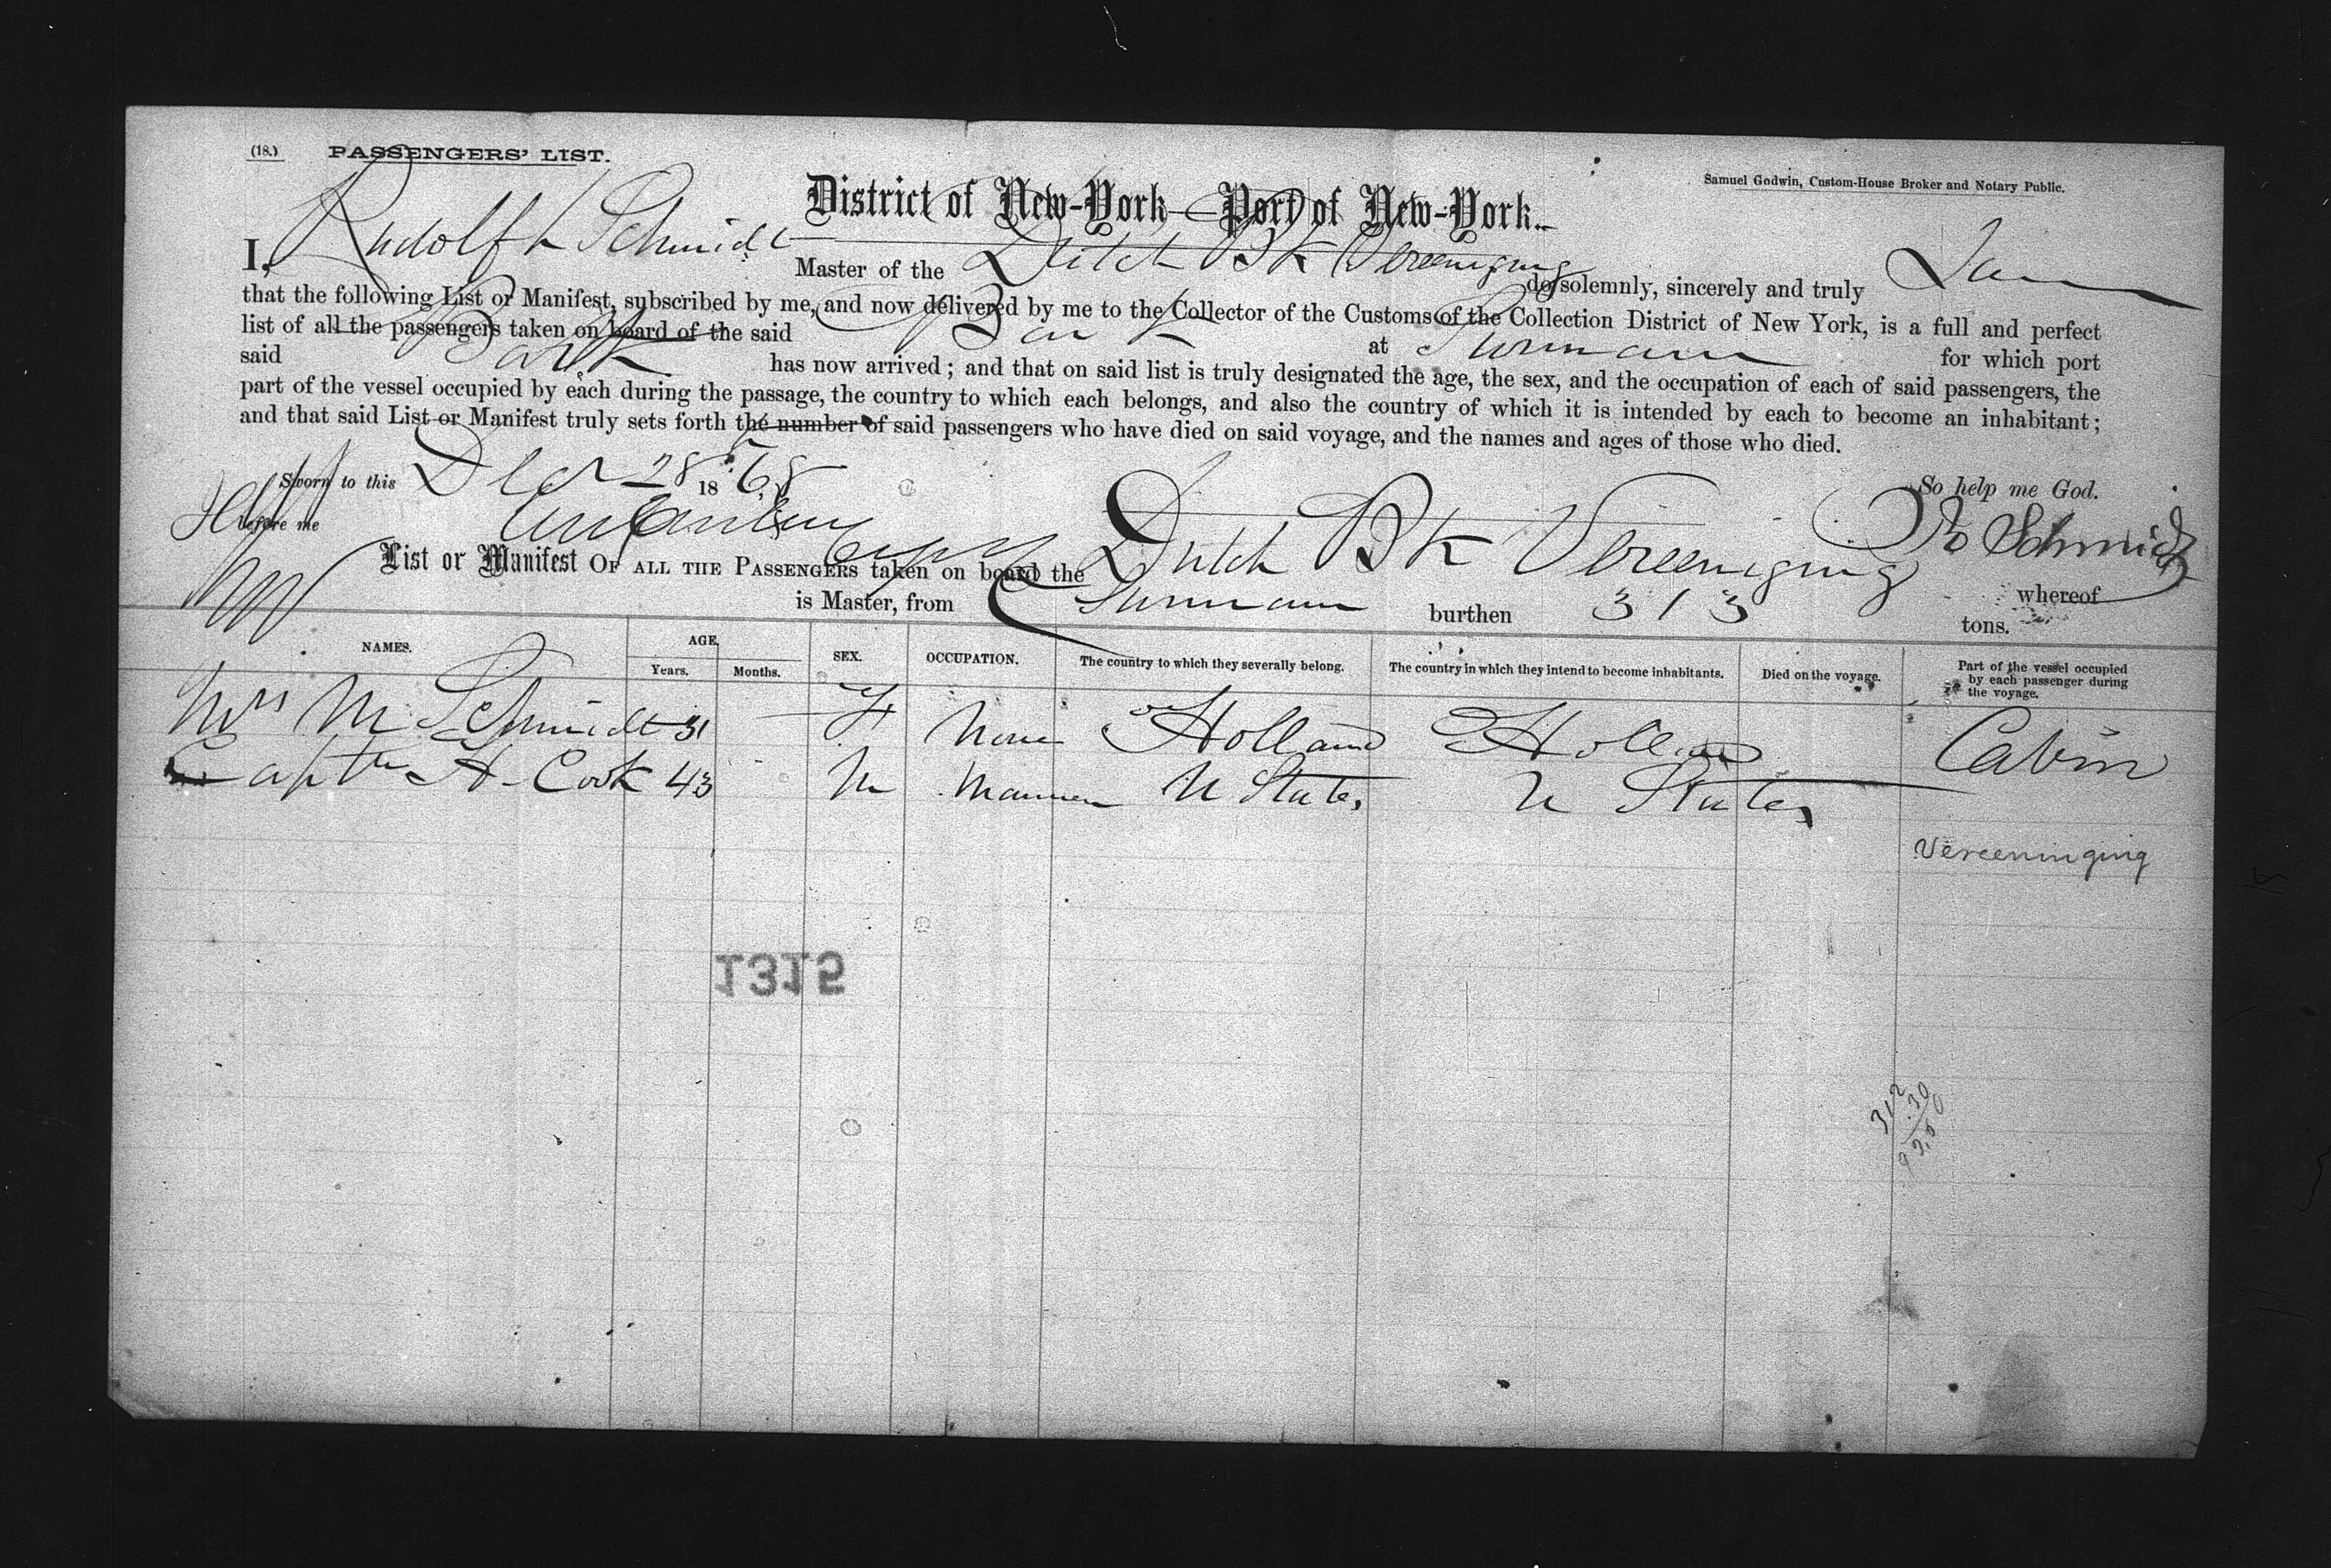 (18.) PASSENGERS' LIST.
Samuel Godwin, Custom-House Broker and Notary Public.
District of New-York—Port of New-York.
I, Rudolf L Schmidt Master of the Dutch Bk Vereeniging do solemnly, sincerely and truly
that the following List or Manifest, subscribed by me, and now delivered by me to the Collector of the Customs of the Collection District of New York, is a full and perfect
list of all the passengers taken on board of the said Bark at Surinam for which port
said Bark has now arrived; and that on said list is truly designated the age, the sex, and the occupation of each of said passengers, the
part of the vessel occupied by each during the passage, the country to which each belongs, and also the country of which it is intended by each to become an inhabitant;
and that said List or Manifest truly sets forth the number of said passengers who have died on said voyage, and the names and ages of those who died.
Sworn to this Decr 28 1868 So help me God.
before me R Schmidt
List or Manifest OF ALL THE PASSENGERS taken on board the Dutch Bk Vereeniging whereof
is Master, from Surinam burthen 313 tons.
NAMES. AGE. Years. Months. SEX. OCCUPATION. The country to which they severally belong. The country in which they intend to become inhabitants. Died on the voyage. Part of the vessel occupied by each passenger during the voyage.
Mrs M Schmidt 31 F None Holland Holland Cabin
Captn A Cook 43 M Mariner U States U States
Vereeninging
1315
312
.30